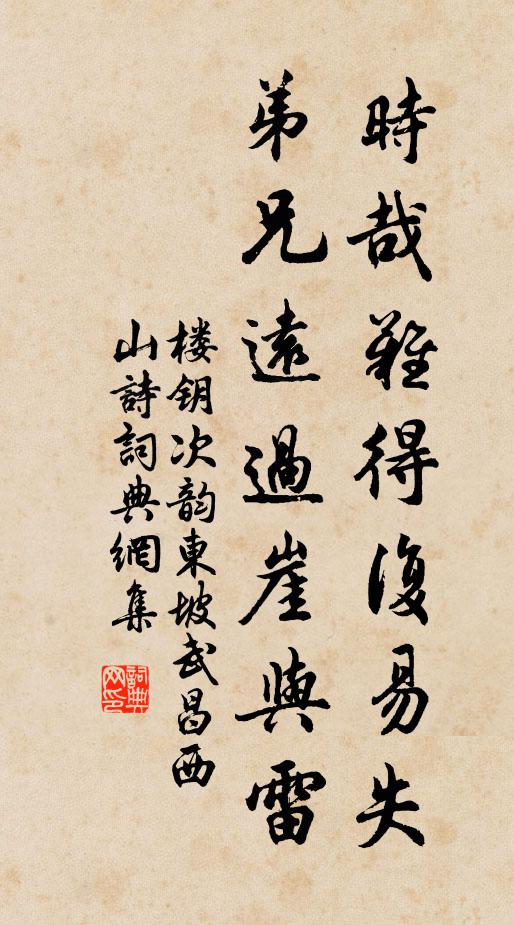 時哉難得復易失
弟兄遠過崖與雷
楼钥次韵東坡武昌西
山詩詞典網集
詞典
网印